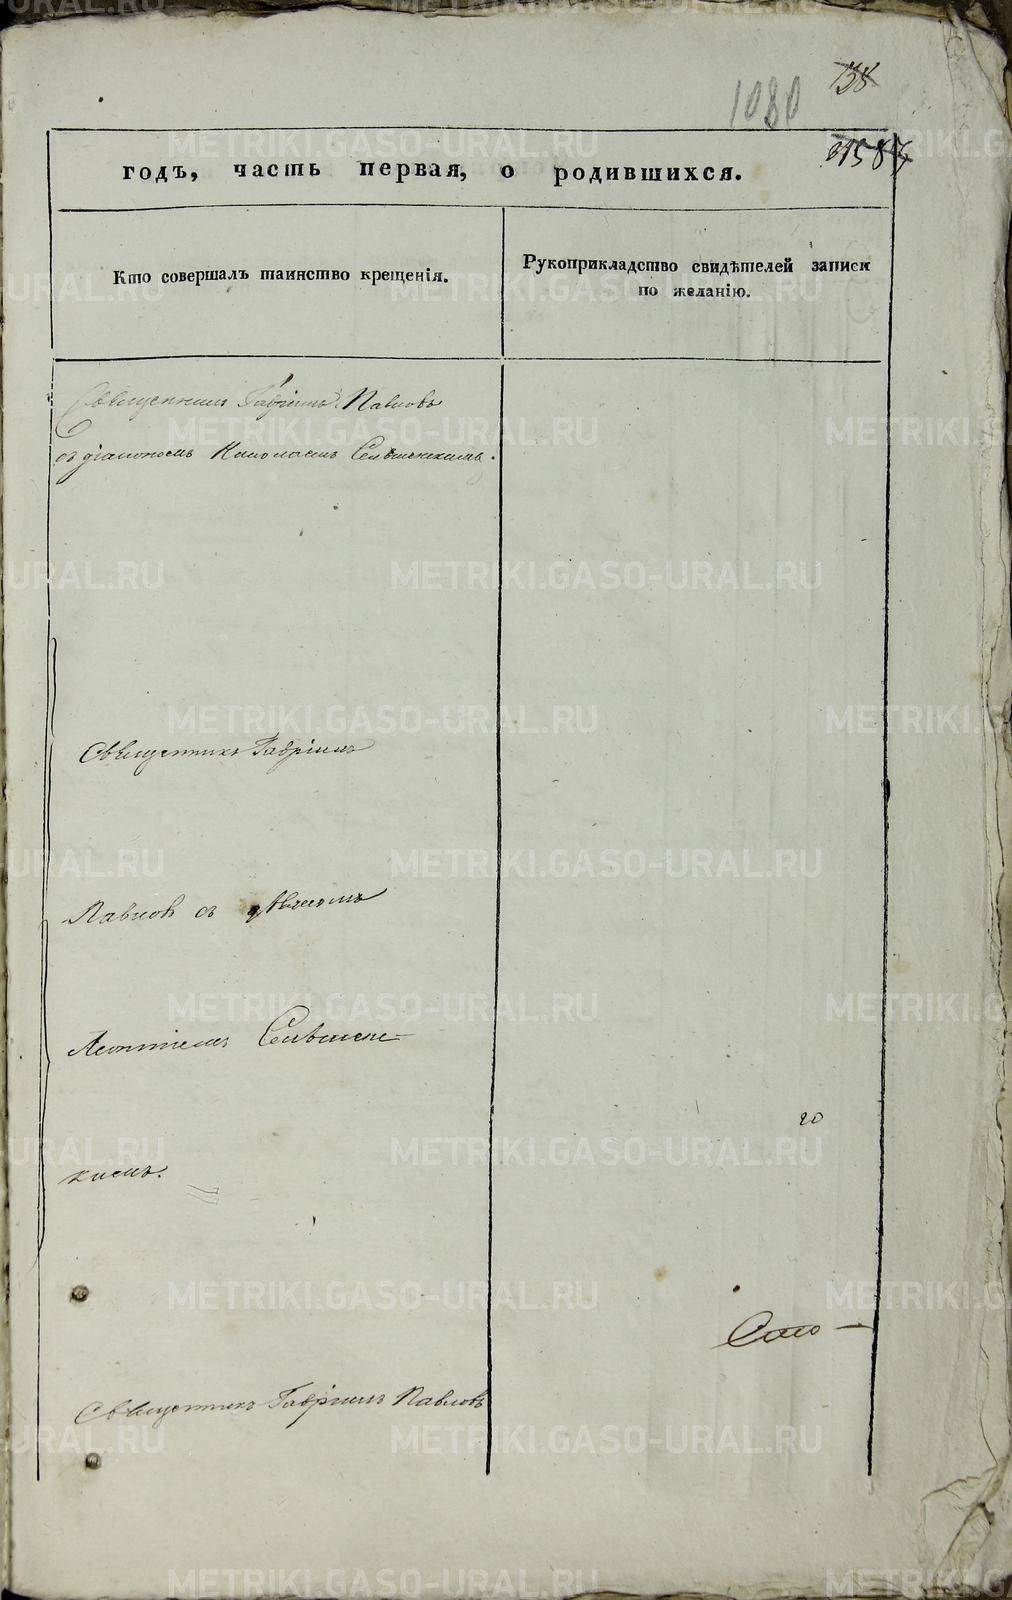 METRIKI.GASO-URAL.RU
138
1080
годъ, часть первая, о родившихся.
Кто совершалъ таинство крещенія.
Рукоприкладство свидѣтелей записи
по желанію.
Священникъ Гавріилъ Павловъ
съ діакономъ Николаемъ
Священникъ Гавріилъ
Павловъ съ дьячкомъ
Леонтіемъ Селѣмен-
кимъ.
го
Само-
Священникъ Гавріилъ Павловъ